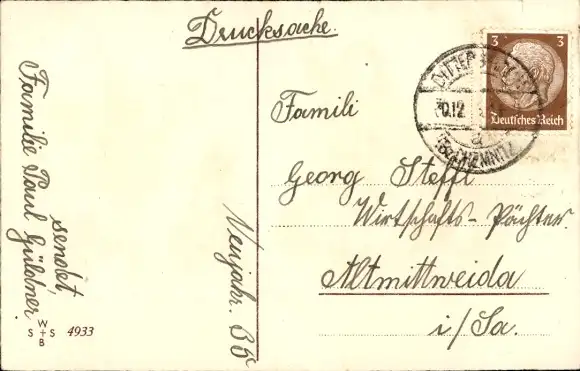 Drucksache.
3 3
Deutsches Reich
30.12
a
CHEMNITZ
Famili
Georg Steffl
Wirtschafts-Pächter.
Altmittweida
i/Sa.
Neujahr. 35
Familie Paul Güldner
sendet
W
S + S
B
4933